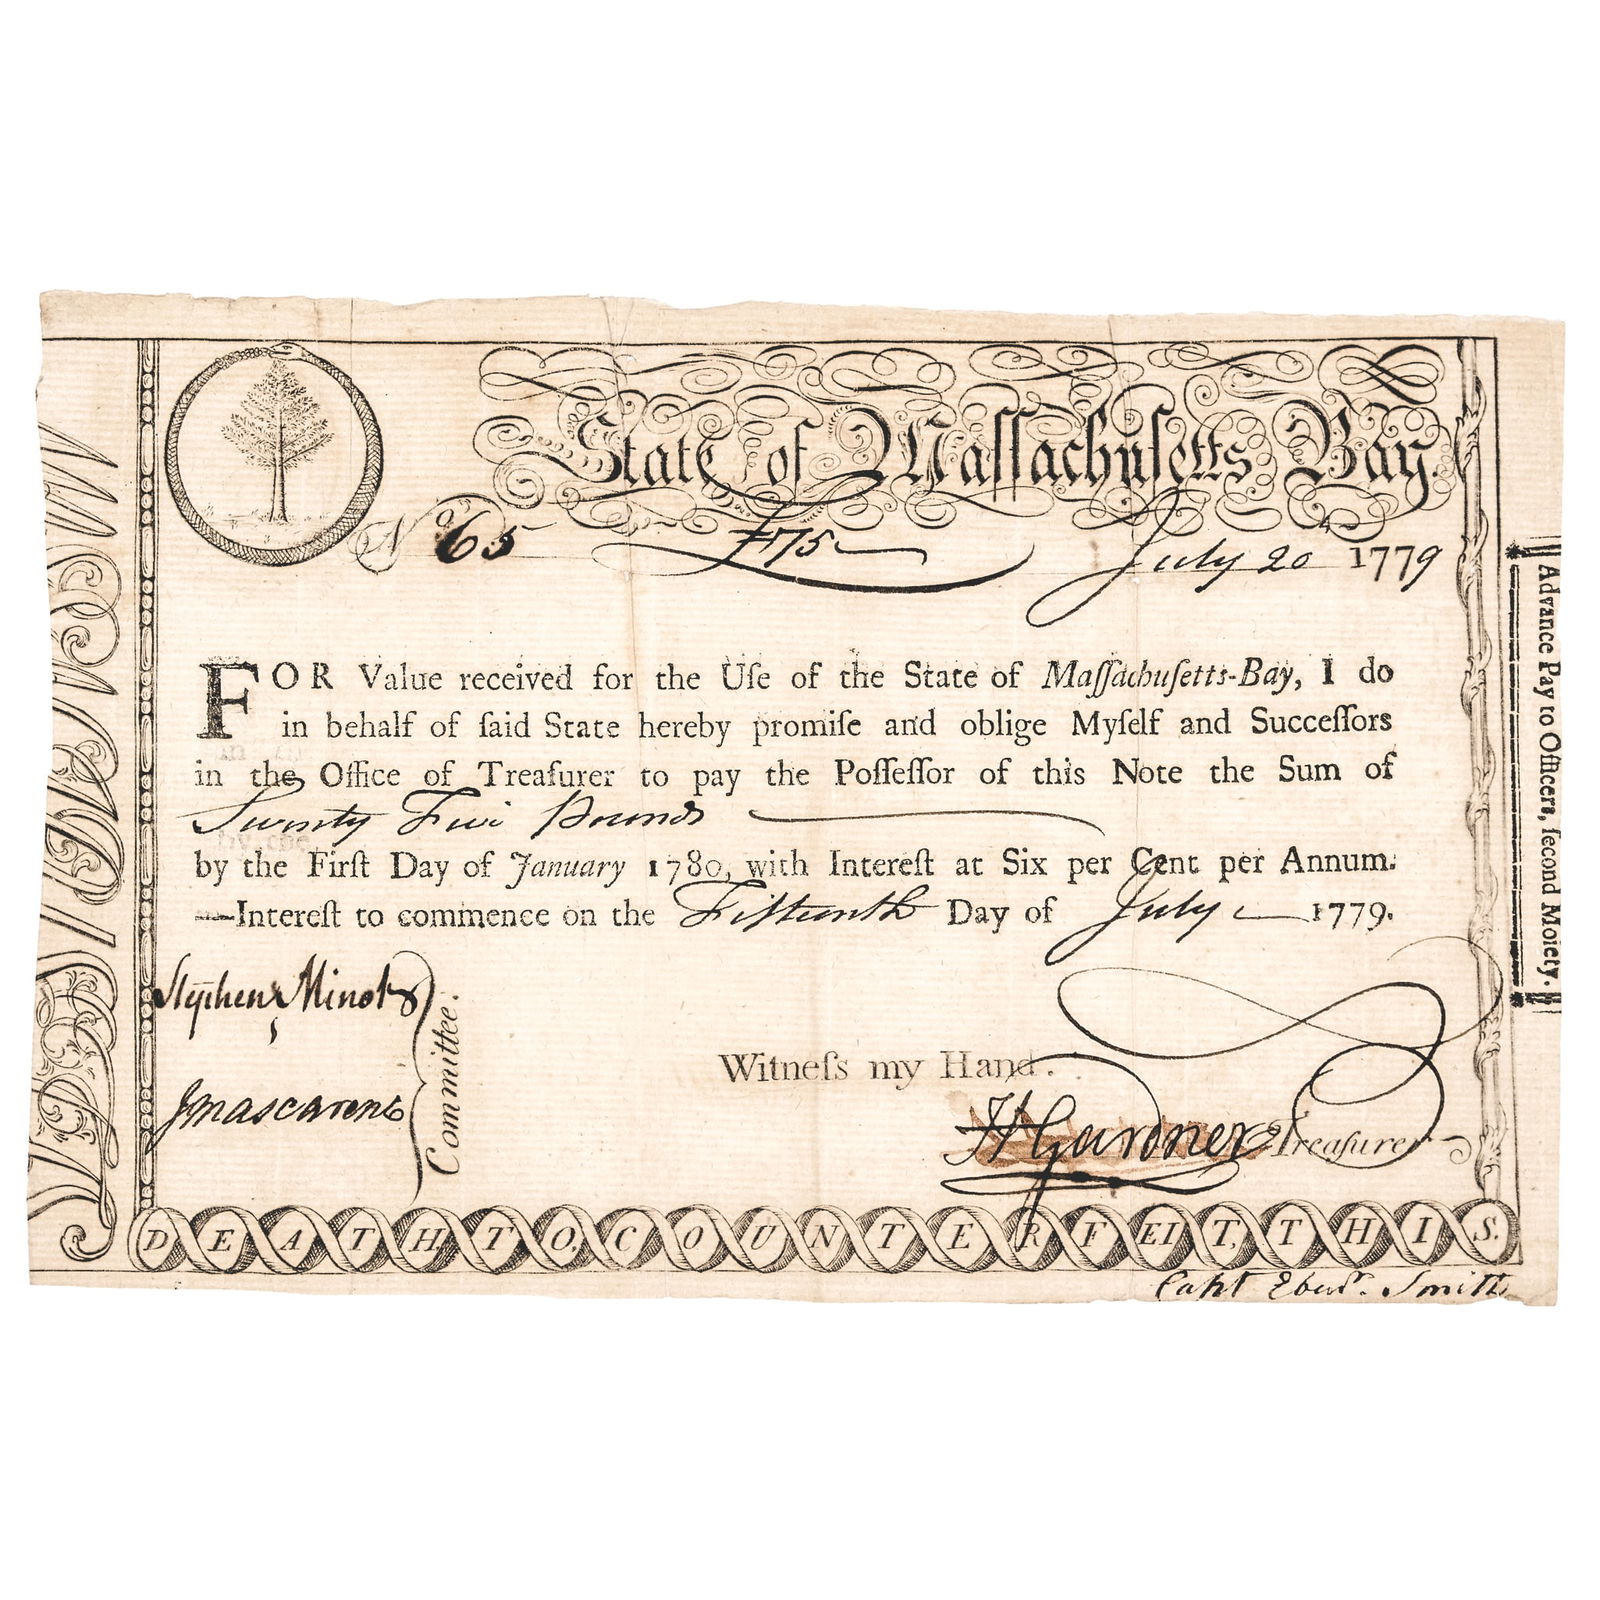 State of Maſſachuſetts Bay.
No 65 £75 July 20th 1779
FOR Value received for the Uſe of the State of Maſſachuſetts-Bay, I do
in behalf of ſaid State hereby promiſe and oblige Myſelf and Succeſſors
in the Office of Treaſurer to pay the Poſſeſſor of this Note the Sum of
Seventy Five Pounds
by the Firſt Day of January 1780, with Intereſt at Six per Cent per Annum.
—Intereſt to commence on the Fifteenth Day of July 1779.
Stephen Minot
J Mascarene
Committee.
Witneſs my Hand.
H Gardner Treaſurer
DEATH TO, COUNTERFEIT, THIS.
Capt Ebenr. Smith
Advance Pay to Officers, ſecond Moiety.